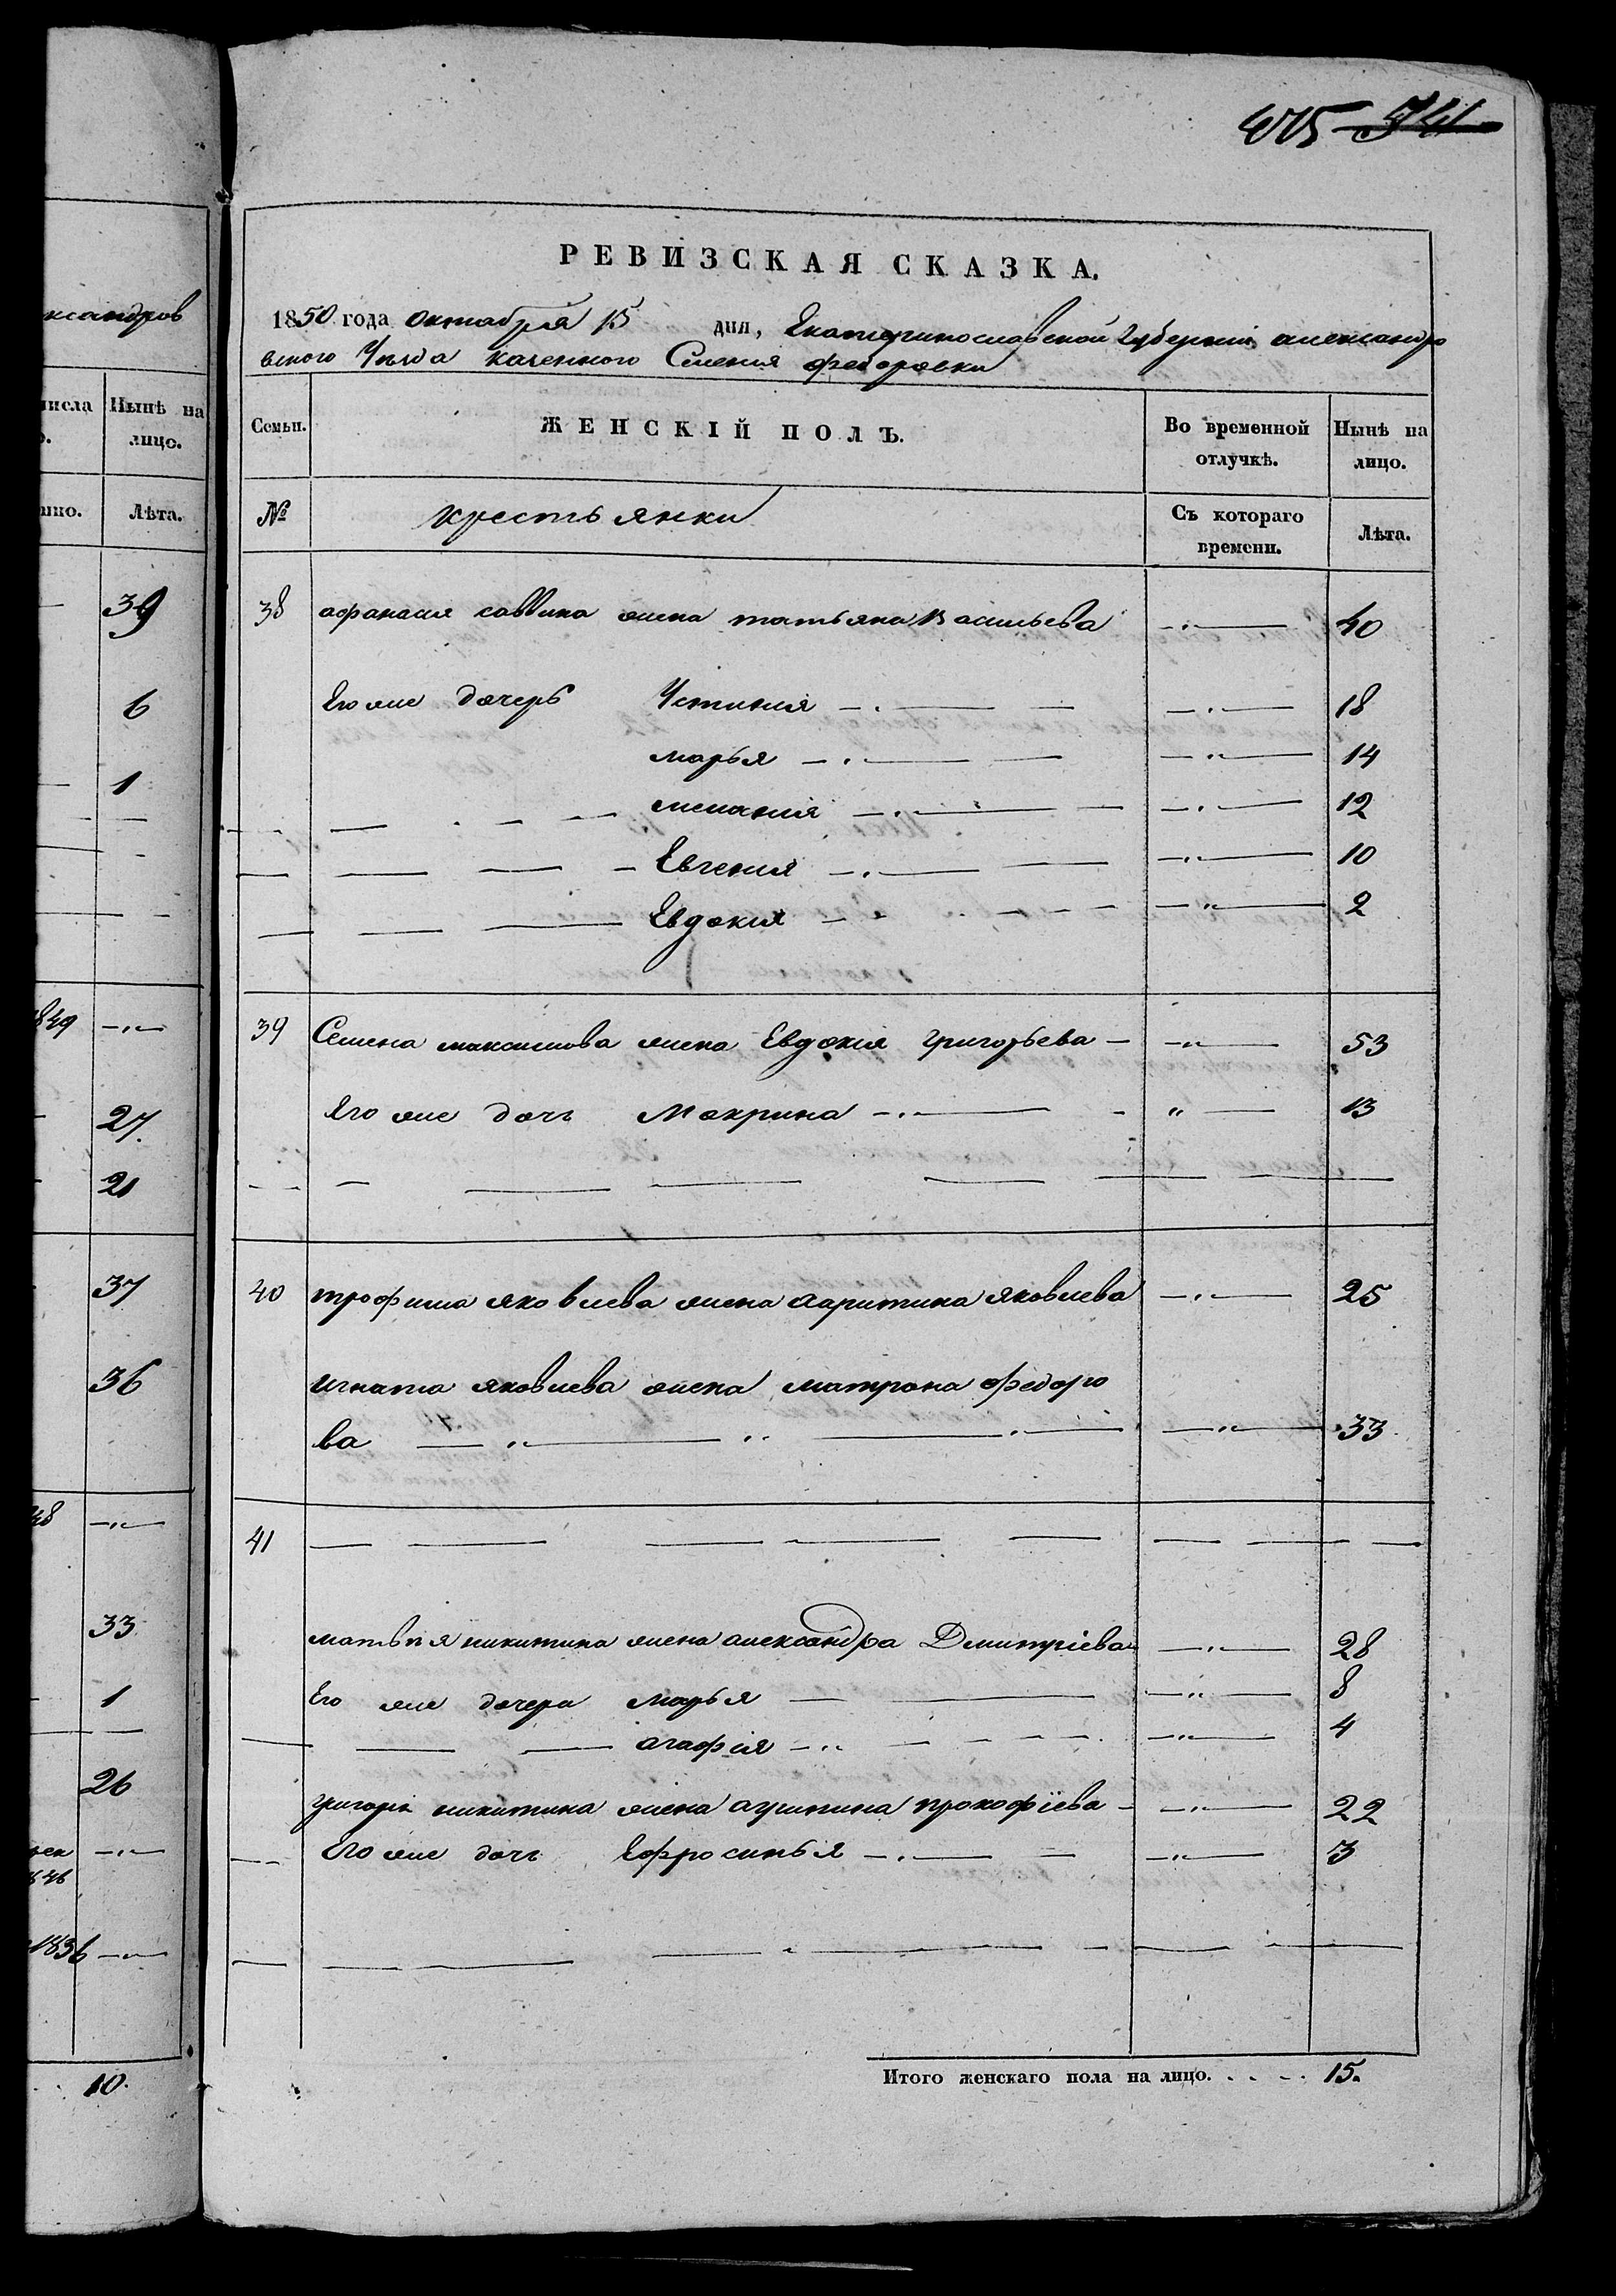 405 741
РЕВИЗСКАЯ СКАЗКА.
1850 года октабря 15 дня, Екатеринославской Губернiи александро
вского Уѣзда казенного Селения федоровки
Семьи. ЖЕНСКІЙ ПОЛЪ. Во временной отлучкѣ. Нынѣ на лицо.
№ крестьянки Съ котораго времени. Лѣта.
38 афанасия саввина жена татьяна Васильева —„— 40
Его же дочерь Устиния —„— 18
марья —„— 14
мелания —„— 12
Евгения —„— 10
Евдокия —„— 2
39 Семена максимова жена Евдокия григорьева —„— 53
Его же дочь Макрина „— 13
40 трофима яковлева жена харитина яковлева —„— 25
игната яковлева жена матрона федоро
ва —„— 33
41
матвѣя никитина жена александра Дмитріева —„— 28
Его же дочери марья —„— 8
агафия —„— 4
григория никитина жена акулина прокофіева —„— 22
Его же дочь Ефросинья —„— 3
Итого женскаго пола на лицо. . . . . 15.
ксандров
числа Нынѣ на
лицо.
Лѣта.
39
6
1
1849 —„—
27.
21
37
36
48 —„—
33
1
26
—„—
1846
1836 —„—
10.